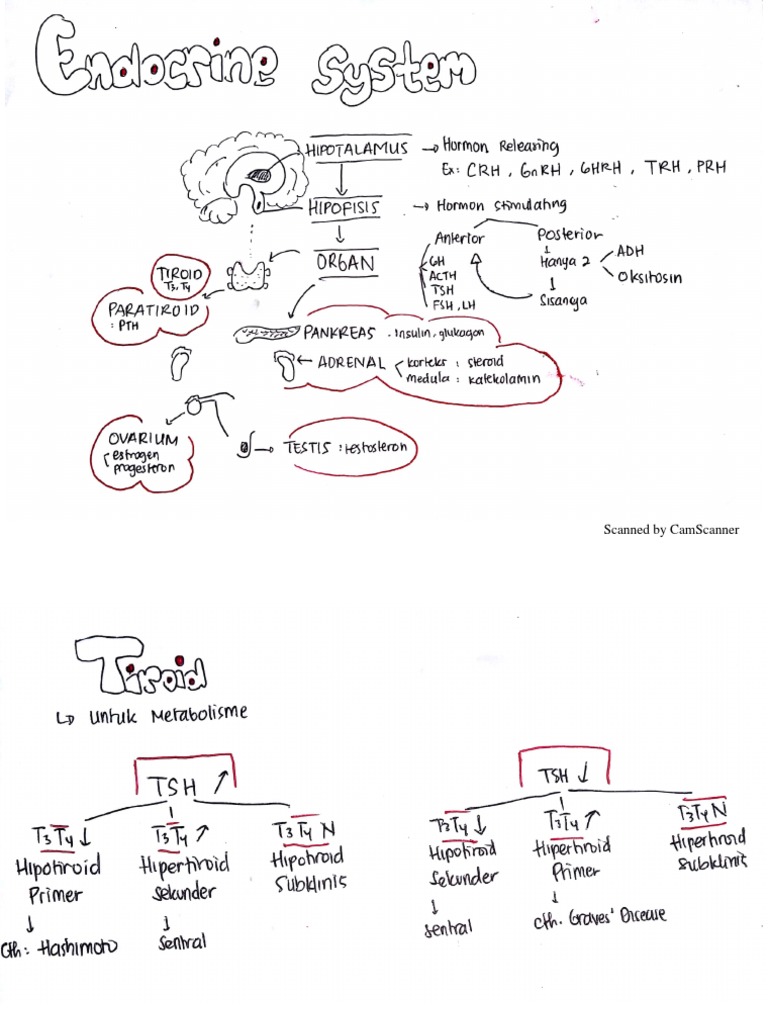 Endocrine System
HIPOTALAMUS → Hormon Releasing
Ex: CRH, GnRH, GHRH, TRH, PRH
HIPOFISIS → Hormon stimulating
Anterior
GH
ACTH
TSH
FSH, LH
Posterior
Hanya 2
ADH
Oksitosin
Sisanya
ORGAN
TIROID
T3, T4
PARATIROID
: PTH
PANKREAS . insulin, glukagon
ADRENAL
korteks : steroid
medula : katekolamin
OVARIUM
estrogen
progesteron
TESTIS : testosteron
Scanned by CamScanner
Tiroid
↳ untuk Metabolisme
TSH ↑
T3 T4 ↓
Hipotiroid
Primer
↓
Cth: Hashimoto
T3 T4 ↑
Hipertiroid
Sekunder
↓
Sentral
T3 T4 N
Hipotiroid
Subklinis
TSH ↓
T3 T4 ↓
Hipotiroid
Sekunder
↓
Sentral
T3 T4 ↑
Hipertiroid
Primer
↓
Cth. Graves' Disease
T3 T4 N
Hipertiroid
Subklinis